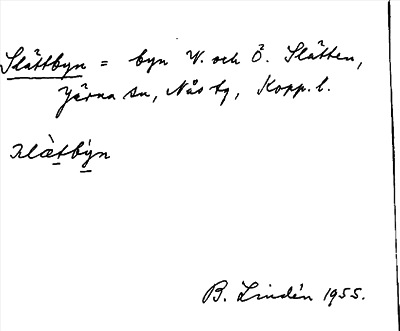 Slättbyn = byn V. och Ö. Slätten,
Järna sn, Nås tg, Kopp. l.
slæ̀tby̆n
B. Lindén 1955.